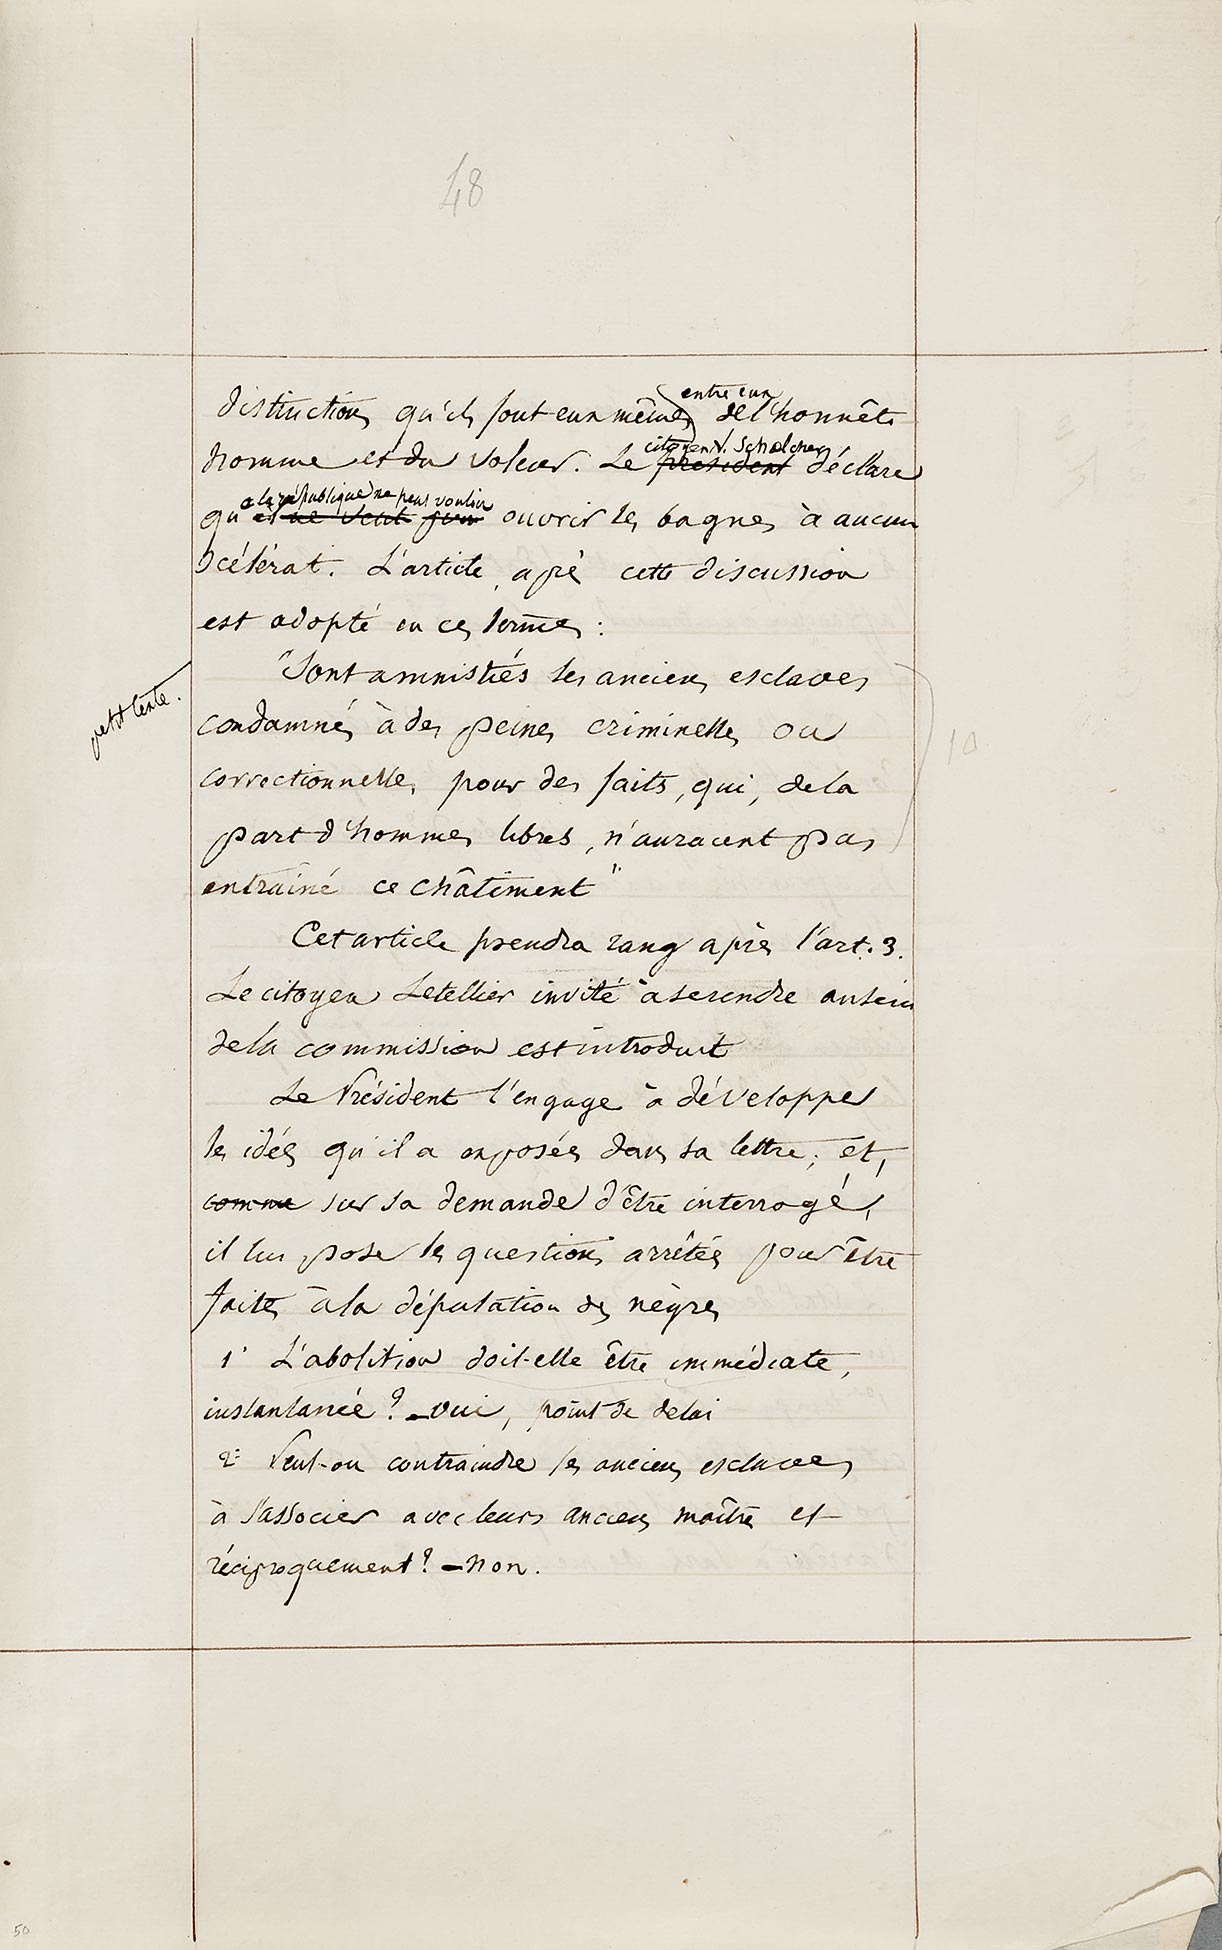 48
entre eux
distinction qu'ils font eux mêmes de l'honnête
citoyen V. Schœlcher
homme et du voleur. Le président déclare
e la république ne peut vouloir
qu'il ne veut ouvrir les bagnes à aucun
scélérat. L'article, après cette discussion
est adopté en ces termes :
"Sont amnistiés les anciens esclaves
petit texte.
condamnés à des peines criminelles ou
correctionnelles pour des faits, qui, de la
10
part d'hommes libres, n'auraient pas
entraîné ce châtiment"
Cet article prendra rang après l'art. 3.
Le citoyen Letellier invité à se rendre au sein
de la commission est introduit
Le Président l'engage à développer
les idées qu'il a exposées dans sa lettre; et,
comme sur sa demande d'être interrogé,
il lui pose les questions arrêtées pour être
faites à la députation des nègres
1° L'abolition doit-elle être immédiate,
instantanée ? – oui, point de délai
2° Peut-on contraindre les anciens esclaves
à s'associer avec leurs anciens maîtres et
réciproquement ? – non.
50